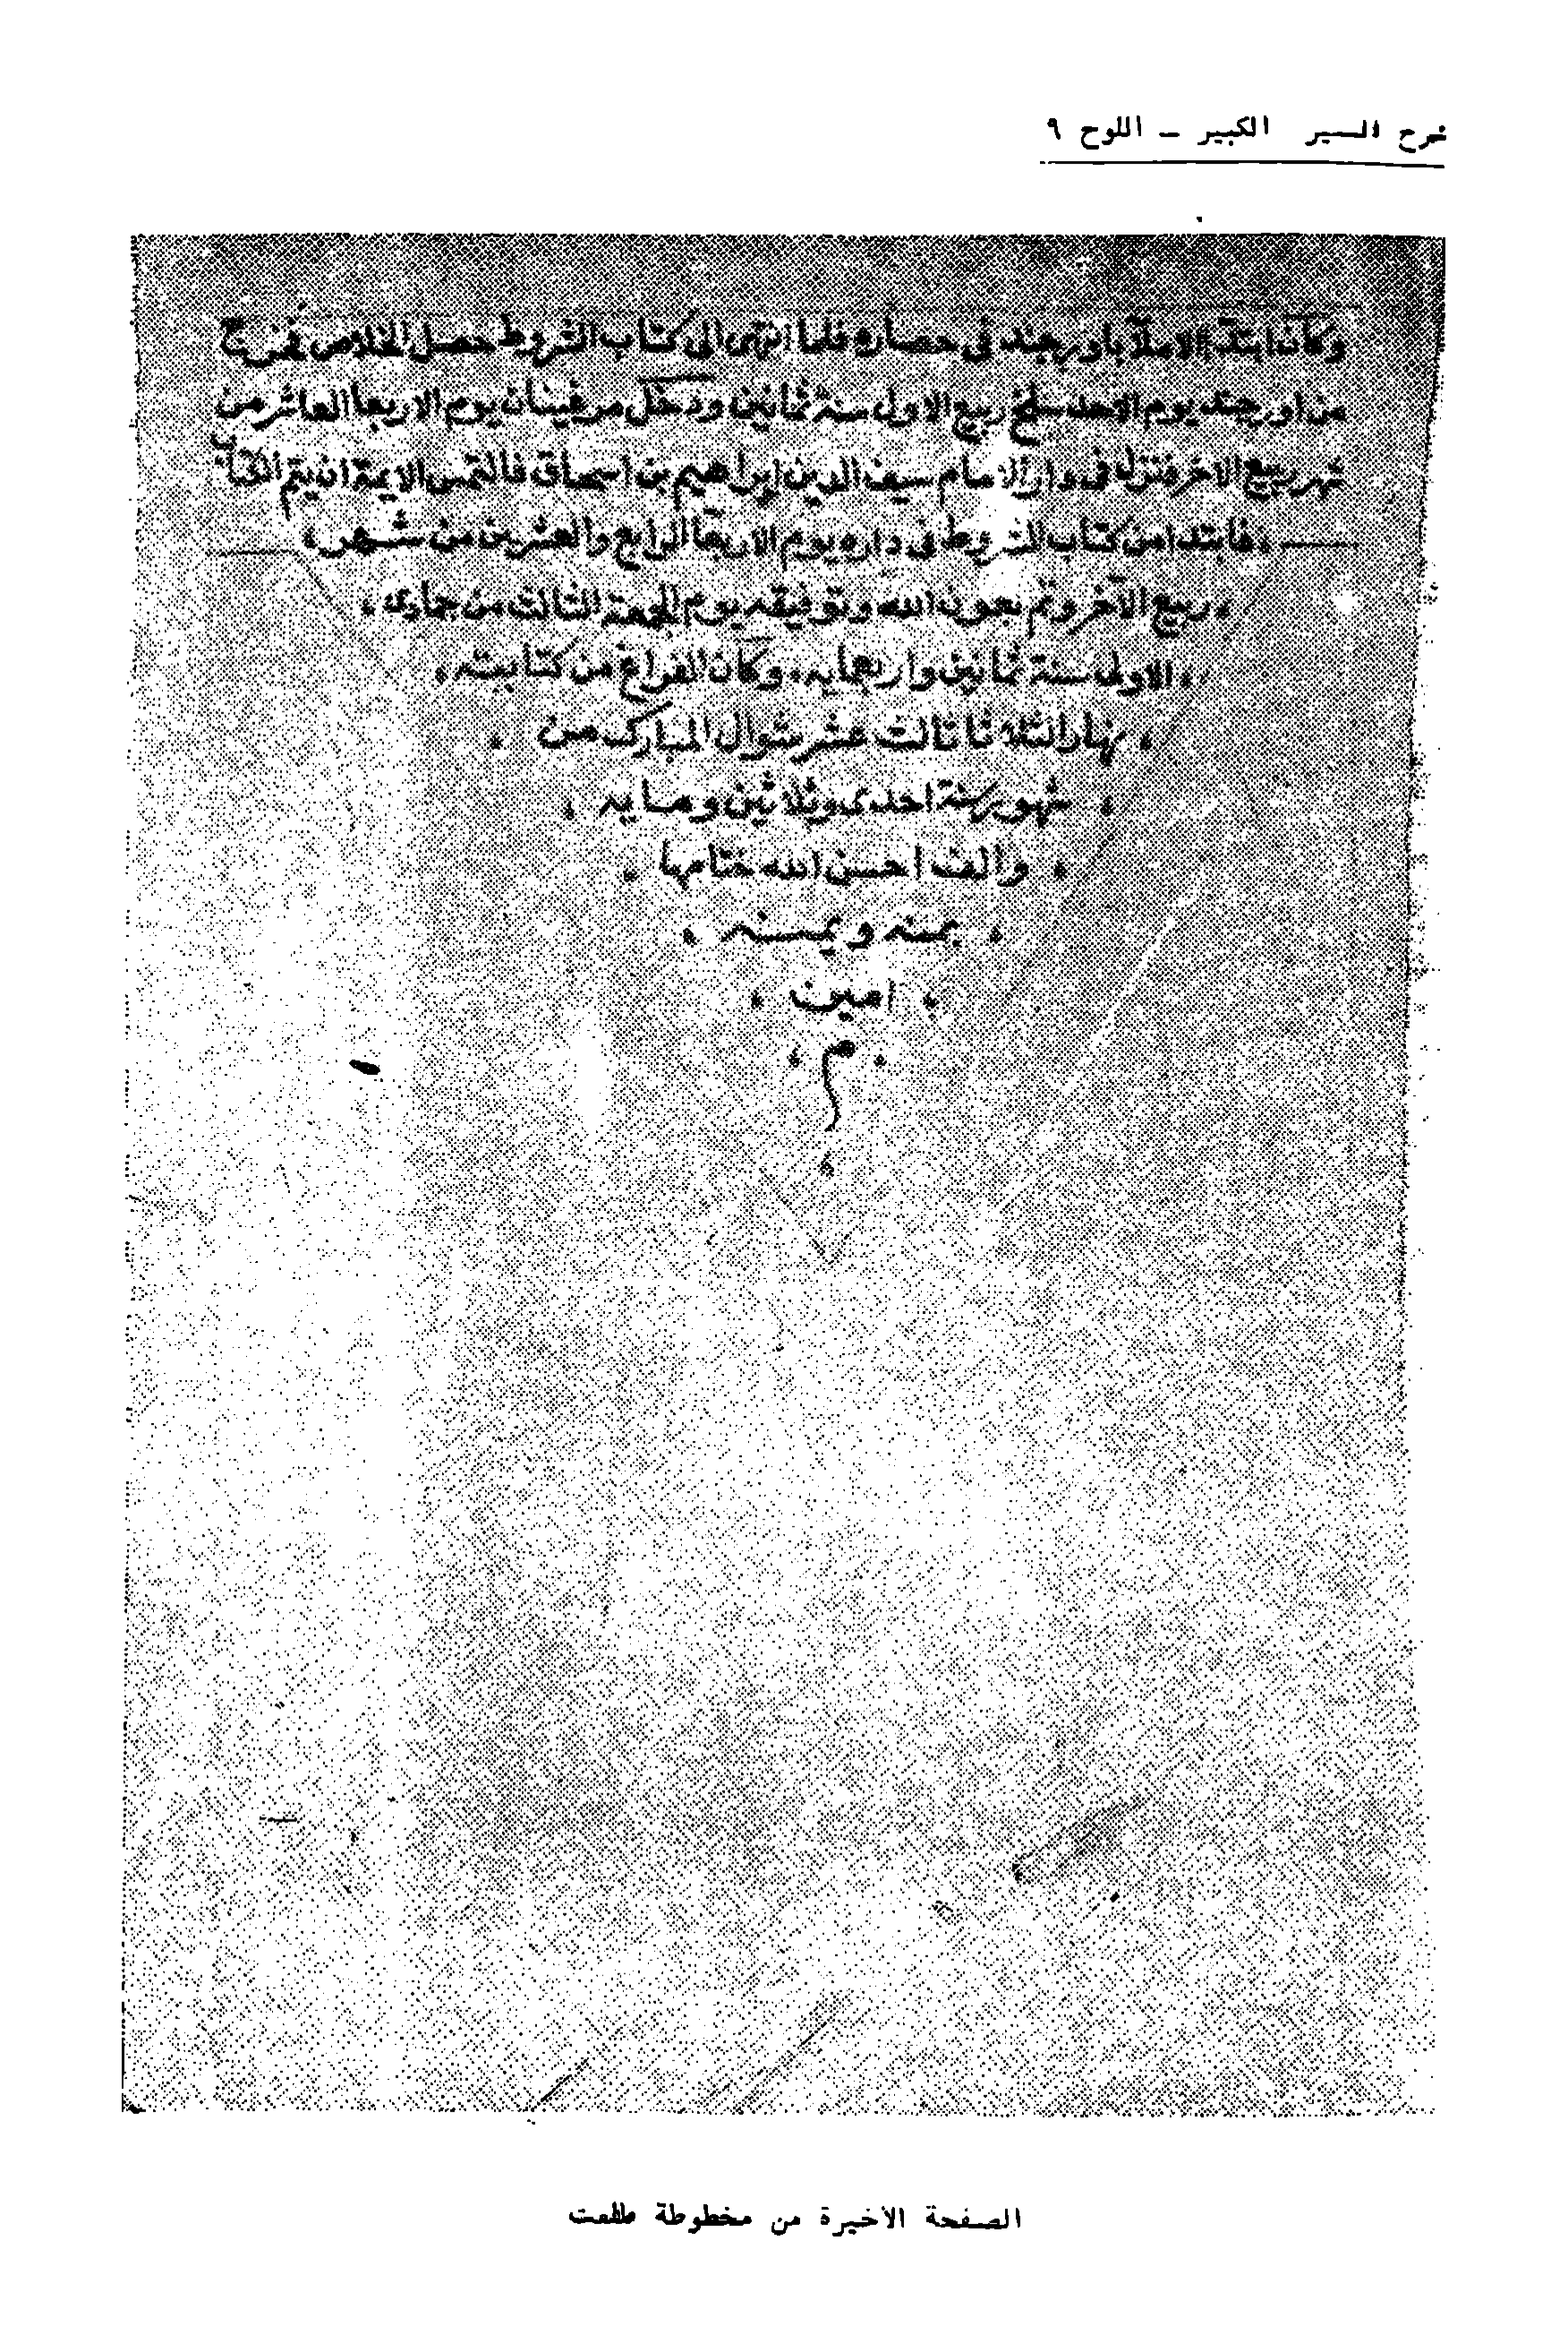 شرح السير الكبير – اللوح ٩
وكان ابتداء الاملاء باوزجند في حصاره فلما انتهى الى كتاب الشروط حصل الخلاص فخرج
من اوزجند يوم الاحد سلخ ربيع الاول سنة ثمانين ودخل مرغينان يوم الاربعا العاشر من
شهر ربيع الاخر فنزل في دار الامام سيف الدين ابراهيم بن اسحاق فالتمس الايمة ان يتم الكتاب
فابتدا من كتاب الشروط في داره يوم الاربعا الرابع والعشرين من شهر
ربيع الآخر وتم بعون الله وتوفيقه يوم الجمعة الثالث من جمادى
الاولى سنة ثمانين واربعمايه وكان الفراغ من كتابته
نهار الثلاثا ثالث عشر شوال المبارك من
شهور سنة احدى وثلاثين ومايه
والف احسن الله ختامها
بمنه ويمنه
امين
م
الصفحة الأخيرة من مخطوطة طلعت